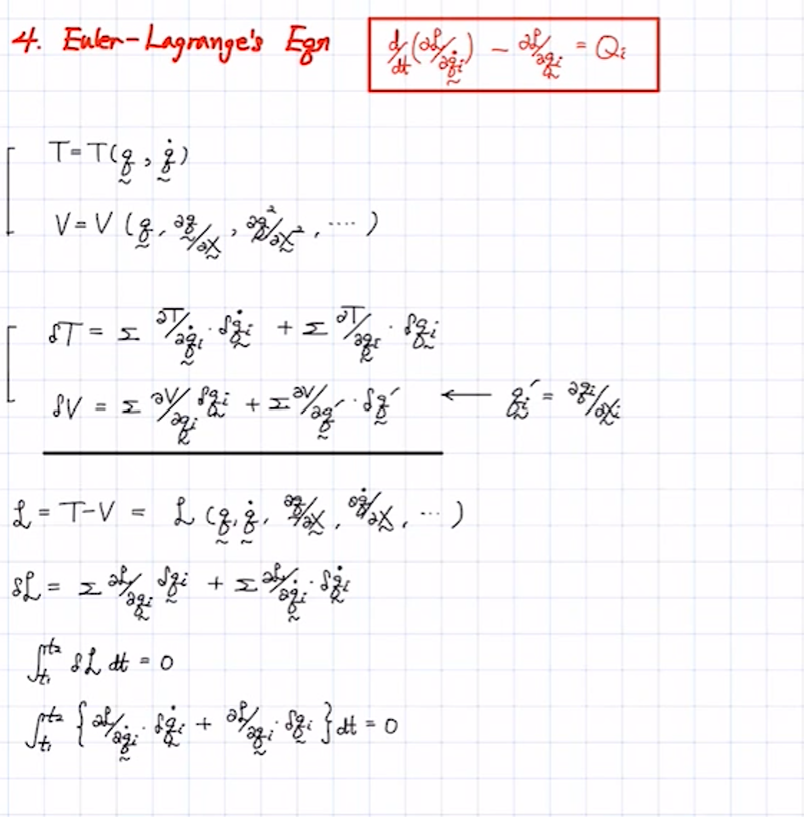 4. Euler-Lagrange's Eqn d/dt(∂ℒ/∂q̇ᵢ) - ∂ℒ/∂qᵢ = Qᵢ
T = T(q, q̇)
V = V(q, ∂q/∂x, ∂q²/∂x², ....)
δT = Σ ∂T/∂q̇ᵢ · δq̇ᵢ + Σ ∂T/∂qᵢ · δqᵢ
δV = Σ ∂V/∂qᵢ δqᵢ + Σ ∂V/∂q′ · δq′ ← qᵢ′ = ∂qᵢ/∂xᵢ
ℒ = T-V = ℒ(q, q̇, ∂q/∂x, ∂q̇/∂x, ...)
δℒ = Σ ∂ℒ/∂qᵢ δqᵢ + Σ ∂ℒ/∂q̇ᵢ · δq̇ᵢ
∫ₜ₁ᵗ² δℒ dt = 0
∫ₜ₁ᵗ² {∂ℒ/∂q̇ᵢ · δq̇ᵢ + ∂ℒ/∂qᵢ · δqᵢ} dt = 0